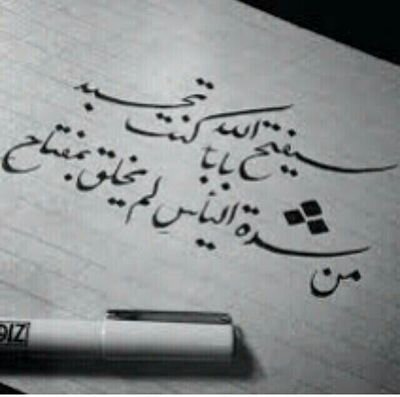 سيفتح الله باباً كنت تحسبه
من شدة اليأس لم يخلق بمفتاح
ZIG